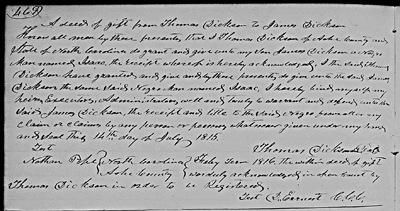 (469)
A deed of gift from Thomas Dickson to James Dickson
Know all men by these presents, that I Thomas Dickson of Ashe County and
State of North Carolina do grant and give unto my Son James Dickson a Negro
Man named Isaac, the receipt whereof is hereby acknowledged, I the said Thomas
Dickson have granted, and give and by these presents, do give unto the said James
Dickson the same said Negro Man named Isaac, I hereby bind myself my
heirs, Executors, Administrators, well and truly to warrant and defend unto the
Said James Dickson, the receipt and title to the Said Negro from after my
claim or claims by any person or persons whatsoever given under my hand
and seal this 14th day of July 1815.
Test Thomas Dickson Seal
Nathan Pope North Carolina Feby Term 1816. the within deed of gift
Ashe County was duly acknowledged in open Court by
Thomas Dickson in order to be Registered.
Test C.C.C.